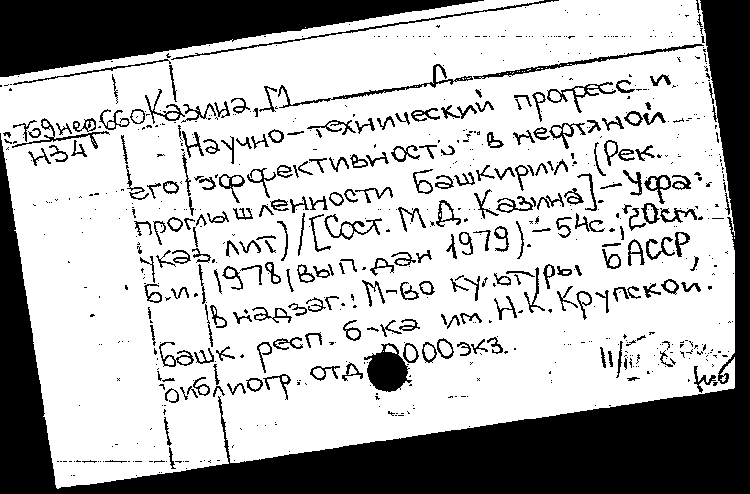 с769неф.660 Казина, М Д
Н34
Научно-технический прогресс и
его эффективность в нефтяной
промышленности Башкирии: (Рек.
указ. лит)/[Сост. М.Д. Казина].-Уфа:
Б.и., 1978(вып.дан 1979).-54с.; 20см.
В надзаг.: М-во культуры БАССР,
Башк. респ. б-ка им. Н.К. Крупской.
библиогр. отд 000экз.
11/III.80